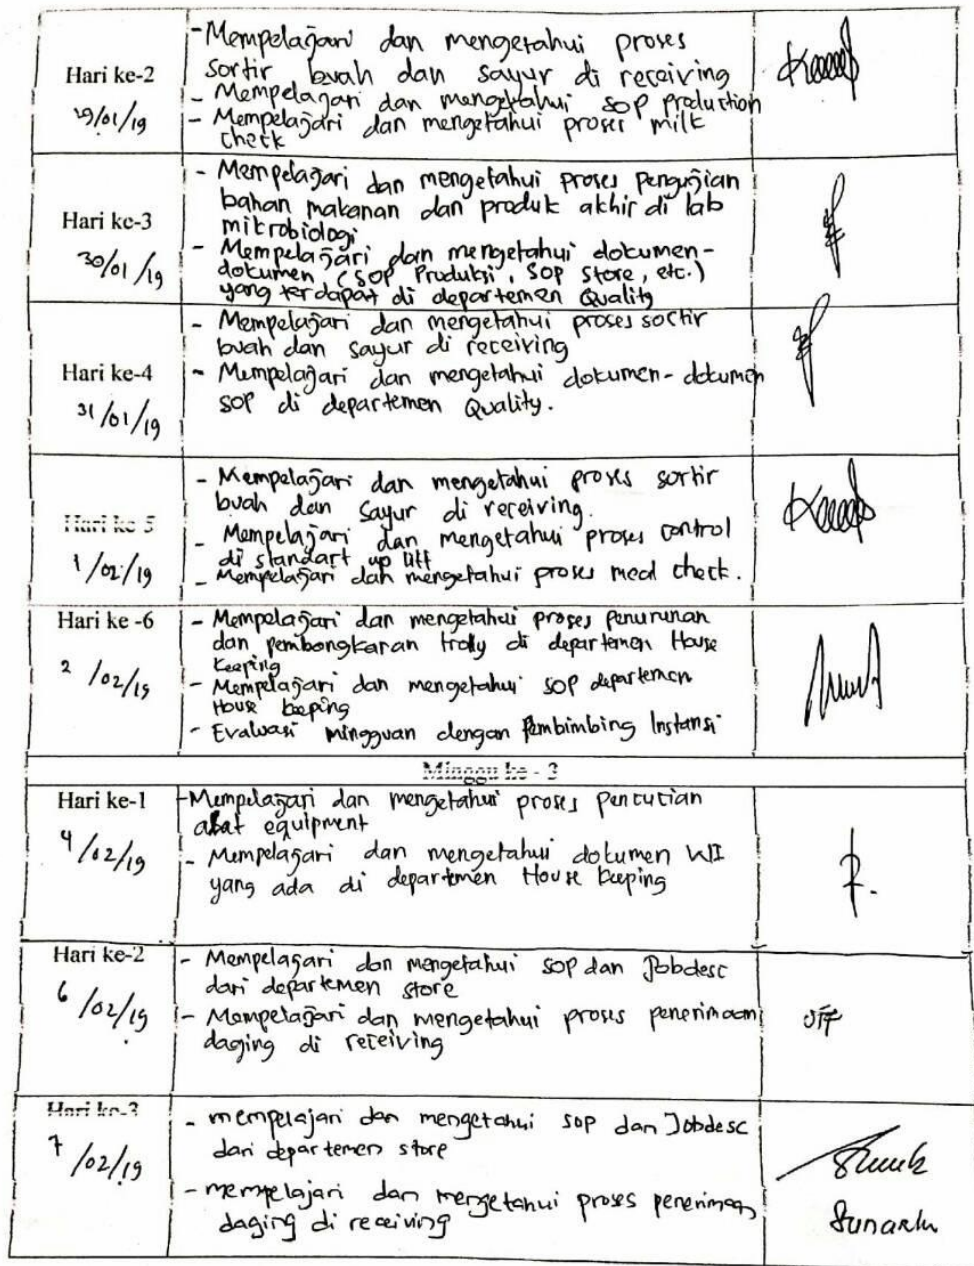 Hari ke-2
29/01/19
- Mempelajari dan mengetahui proses
sortir buah dan sayur di receiving
- Mempelajari dan mengetahui SOP production
- Mempelajari dan mengetahui proses milk
check
Hari ke-3
30/01/19
- Mempelajari dan mengetahui proses pengujian
bahan makanan dan produk akhir di lab
mikrobiologi
- Mempelajari dan mengetahui dokumen-
dokumen (SOP Produksi, SOP Store, etc.)
yang terdapat di departemen Quality
Hari ke-4
31/01/19
- Mempelajari dan mengetahui proses sortir
buah dan sayur di receiving
- Mempelajari dan mengetahui dokumen-dokumen
SOP di departemen Quality.
Hari ke-5
1/02/19
- Mempelajari dan mengetahui proses sortir
buah dan sayur di receiving.
- Mempelajari dan mengetahui proses control
di standart up lift
- Mempelajari dan mengetahui proses meal check.
Hari ke -6
2/02/19
- Mempelajari dan mengetahui proses penurunan
dan pembongkaran trolly di departemen House
Keeping
- Mempelajari dan mengetahui SOP departemen
House keeping
- Evaluasi mingguan dengan Pembimbing Instansi
Minggu ke - 3
Hari ke-1
4/02/19
- Mempelajari dan mengetahui proses pencucian
alat equipment
- Mempelajari dan mengetahui dokumen WI
yang ada di departemen House keeping
Hari ke-2
6/02/19
- Mempelajari dan mengetahui SOP dan Jobdesc
dari departemen store
- Mempelajari dan mengetahui proses penerimaan
daging di receiving
OFF
Hari ke-3
7/02/19
- mempelajari dan mengetahui SOP dan Jobdesc
dari departemen store
- mempelajari dan mengetahui proses penerimaan
daging di receiving